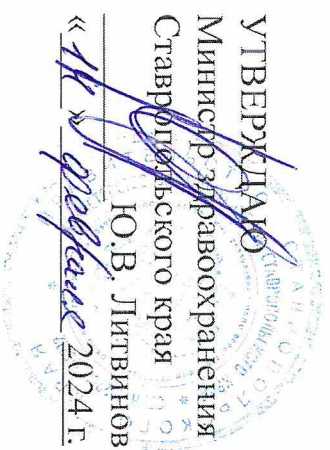 УТВЕРЖДАЮ
Министр здравоохранения
Ставропольского края
Ю.В. Литвинов
« » февраля 2024 г.